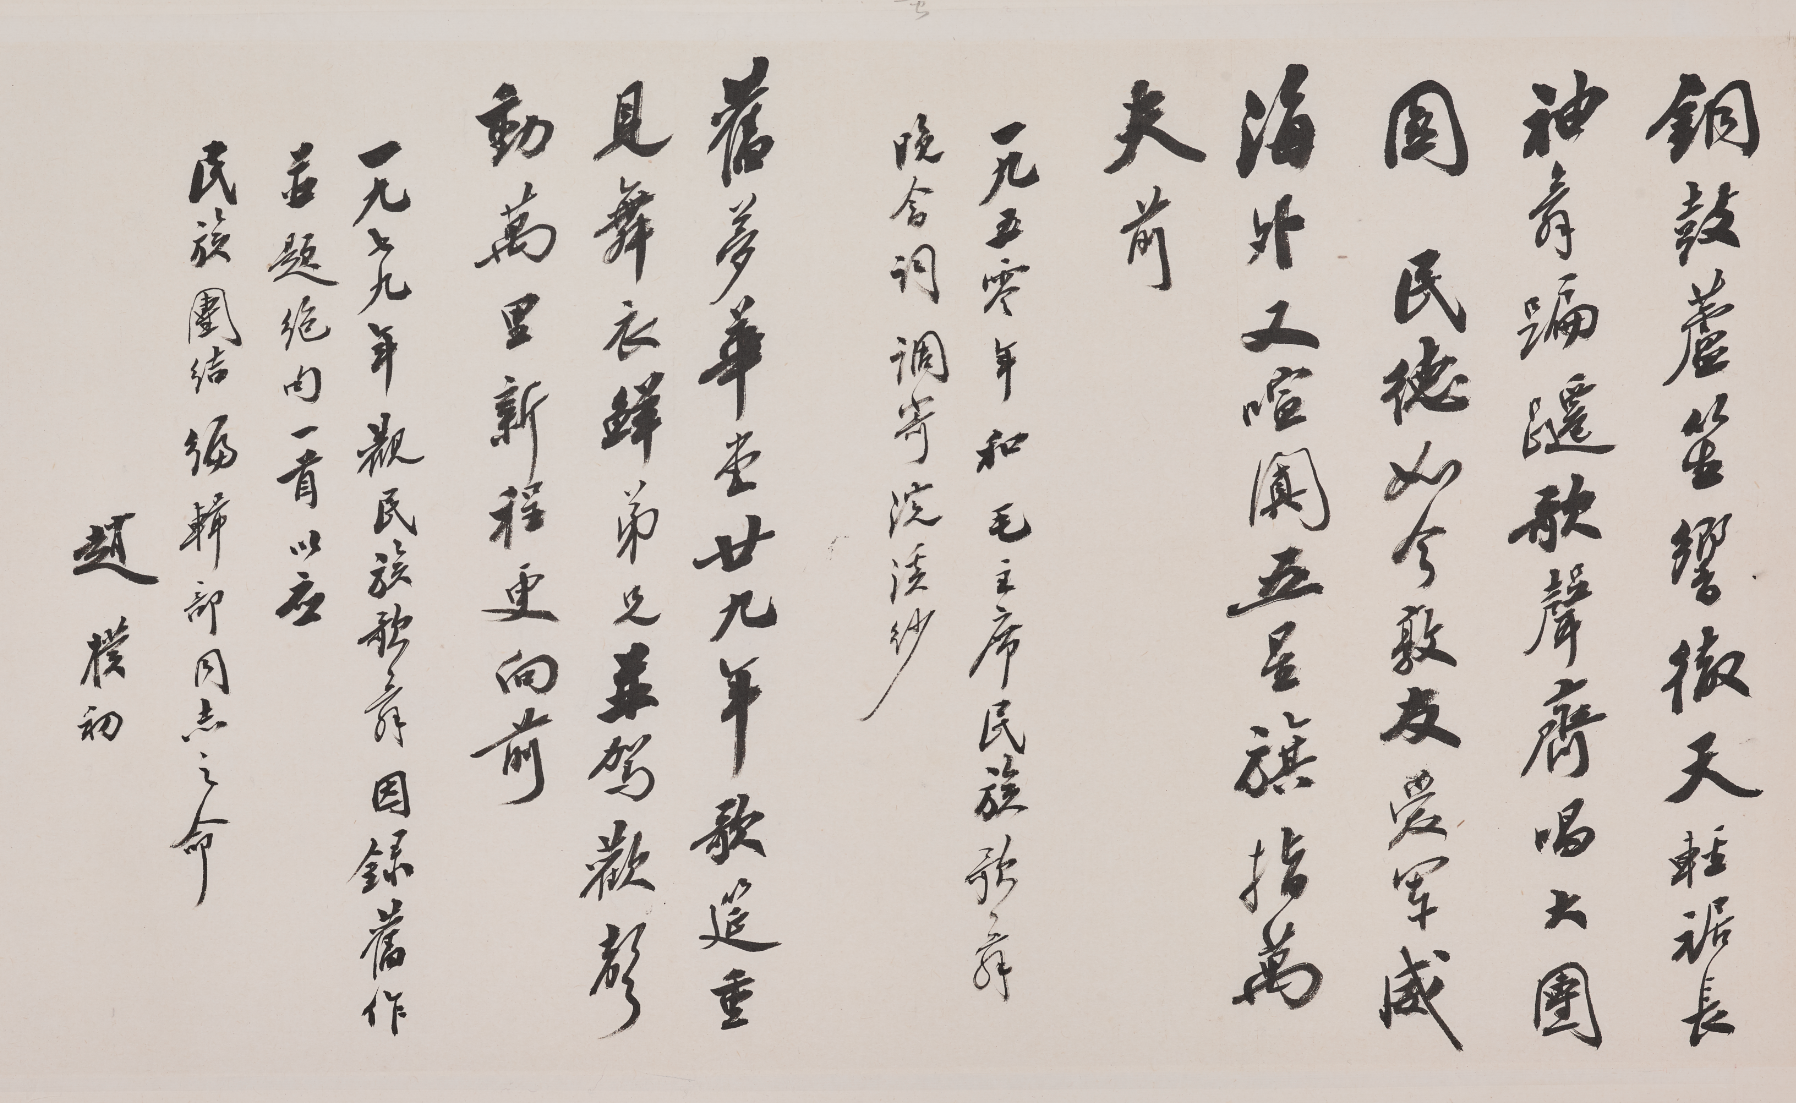 銅鼓蘆笙響徹天輕裾長
袖舞蹁躚歌聲齊唱大團
圓 民德如今敦友愛軍威
海外又喧闐五星旗指萬
夫前
一九五零年和毛主席民族歌舞
晚會詞調寄浣溪紗
舊夢華堂廿九年歌筵重
見舞衣鮮弟兄並駕歡聲
動萬里新程更向前
一九七九年觀民族歌舞因録舊作
並題絕句一首以應
民族團結編輯部同志之命
趙樸初